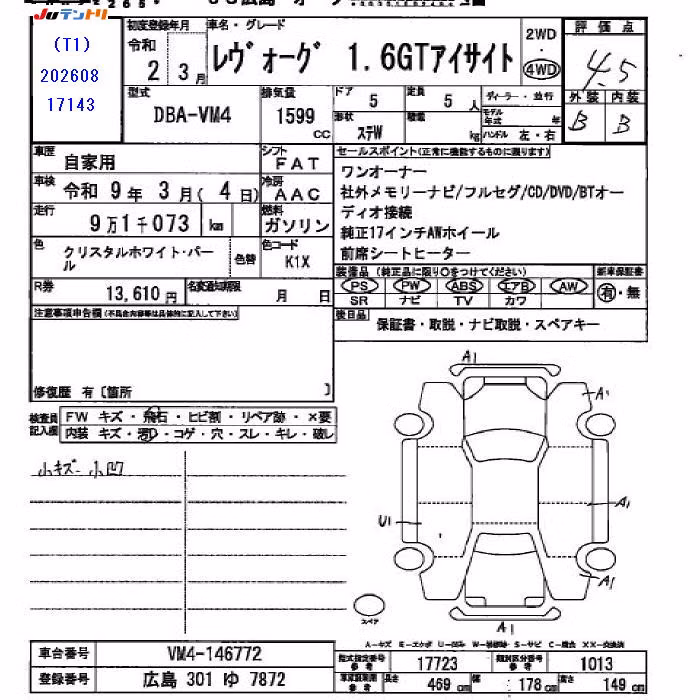 JUテントリ
(T1)
202608
17143
初度登録年月
令和
2 3月
車名・グレード
レヴォーグ 1.6GTアイサイト
2WD
・
4WD
評価点
4.5
型式
DBA-VM4
排気量
1599
CC
ドア 5
定員 5 人
形状 ステW
積載 kg
ディーラー・並行
モデル年式 年
ハンドル 左・右
外装 内装
B B
車歴 自家用
シフト FAT
車検 令和 9年 3月( 4日)
冷房 AAC
走行 9万1千073 km
燃料 ガソリン
色 クリスタルホワイト・パール
色替
色コード K1X
R券 13,610円
名変通知期限 月 日
セールスポイント(正常に機能するものに限ります)
ワンオーナー
社外メモリーナビ/フルセグ/CD/DVD/BTオー
ディオ接続
純正17インチAWホイール
前席シートヒーター
装備品(純正品に限り○をつけてください)
新車保証書
PS PW ABS エアB AW
有・無
SR ナビ TV カワ
後日品 保証書・取説・ナビ取説・スペアキー
注意事項申告欄(不具合内容等は具体的に記入して下さい)
修復歴 有〔箇所 〕
検査員記入欄
FW キズ・飛石・ヒビ割・リペア跡・×要
内装 キズ・汚れ・コゲ・穴・スレ・キレ・破レ
小キズ 小凹
A1
A1
A1
U1
A1
A1
スペア
A-キズ E-エクボ U-凹み W-補修跡 S-サビ C-腐食 XX-交換済
車台番号 VM4-146772
登録番号 広島 301 ゆ 7872
型式指定番号 参考 17723
類別区分番号 参考 1013
長さ 469 cm
幅 178 cm
高さ 149 cm